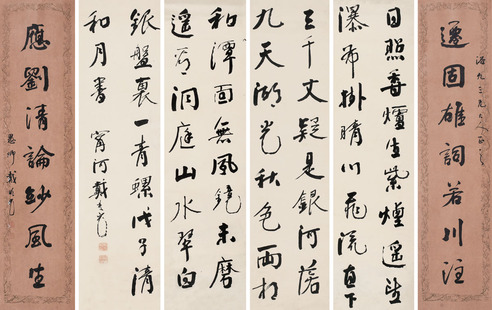 遷固雄詞若川注
日照香爐生紫煙遙望
瀑布掛晴川飛流直下
三千丈疑是銀河落
九天湖光秋色兩相
和潭面無風鏡未磨
遥望洞庭山水翠白
銀盤裏一青螺戊子清
和月書 甯河戴
應劉清論玅風生